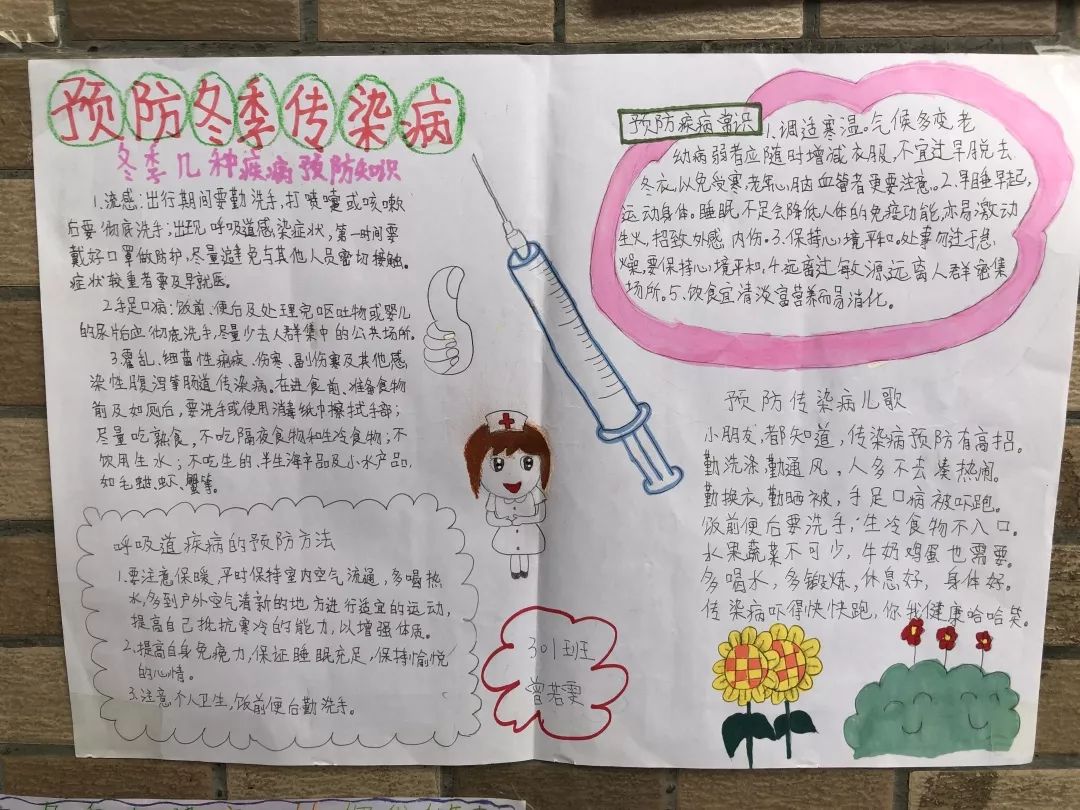 预防冬季传染病
冬季几种疾病预防知识
1.流感:出行期间要勤洗手,打喷嚏或咳嗽
后要彻底洗手;出现呼吸道感染症状,第一时间要
戴好口罩做防护,尽量避免与其他人员密切接触。
症状较重者要及早就医。
2.手足口病:饭前、便后及处理完呕吐物或婴儿
的尿片后应彻底洗手,尽量少去人群集中的公共场所。
3.霍乱、细菌性痢疾、伤寒、副伤寒及其他感
染性腹泻等肠道传染病。在进食前、准备食物
前及如厕后,要洗手或使用消毒纸巾擦拭手部;
尽量吃熟食,不吃隔夜食物和生冷食物;不
饮用生水;不吃生的、半生海产品及小水产品,
如毛蚶、虾、蟹等。
呼吸道疾病的预防方法
1.要注意保暖,平时保持室内空气流通,多喝热
水,多到户外空气清新的地方进行适宜的运动,
提高自己抵抗寒冷的能力,以增强体质。
2.提高自身免疫力,保证睡眠充足,保持愉悦
的心情。
3.注意个人卫生,饭前便后勤洗手。
301班
曾若雯
预防疾病常识
1.调适寒温。气候多变老
幼病弱者应随时增减衣服,不宜过早脱去
冬衣,以免受寒老年心脑血管者更要注意。2.早睡早起,
运动身体。睡眠不足会降低人体的免疫功能,亦易激动
生火,招致外感内伤。3.保持心境平和。处事勿过于急
燥,要保持心境平和,4.远离过敏源远离人群密集
场所。5、饮食宜清淡富营养而易消化。
预防传染病儿歌
小朋友,都知道,传染病预防有高招。
勤洗涤,勤通风,人多不去凑热闹。
勤换衣,勤晒被,手足口病被吓跑。
饭前便后要洗手,生冷食物不入口。
水果蔬菜不可少,牛奶鸡蛋也需要。
多喝水,多锻炼,休息好,身体好。
传染病吓得快快跑,你我健康哈哈笑。